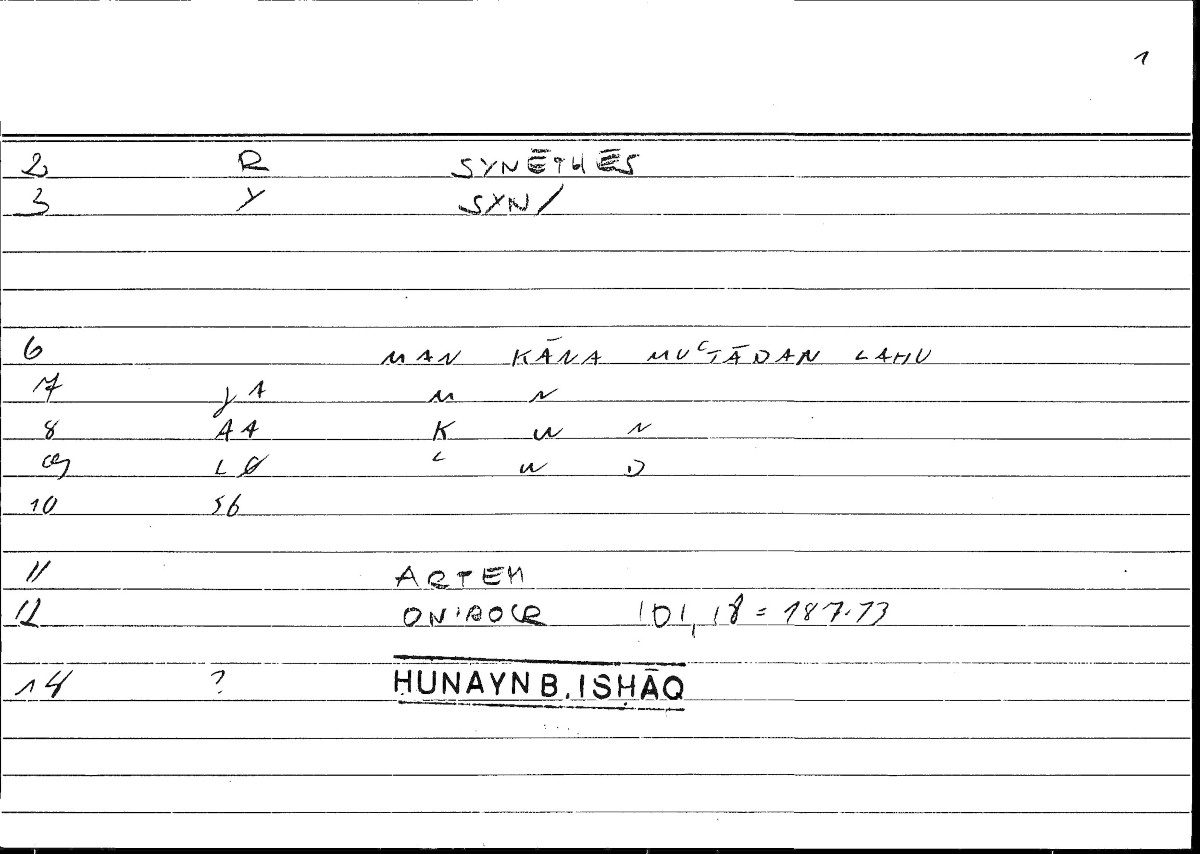 1
2 R SYNĒTHĒS
3 Y SYN/
6 MAN KĀNA MUʿTĀDAN LAHU
7 γA M N
8 AA K W N
9 LØ ʿ W D
10 56
11 ARTEM
12 ONIROCR 101,18 = 187.13
14 ? ḤUNAYN B. ISḤĀQ